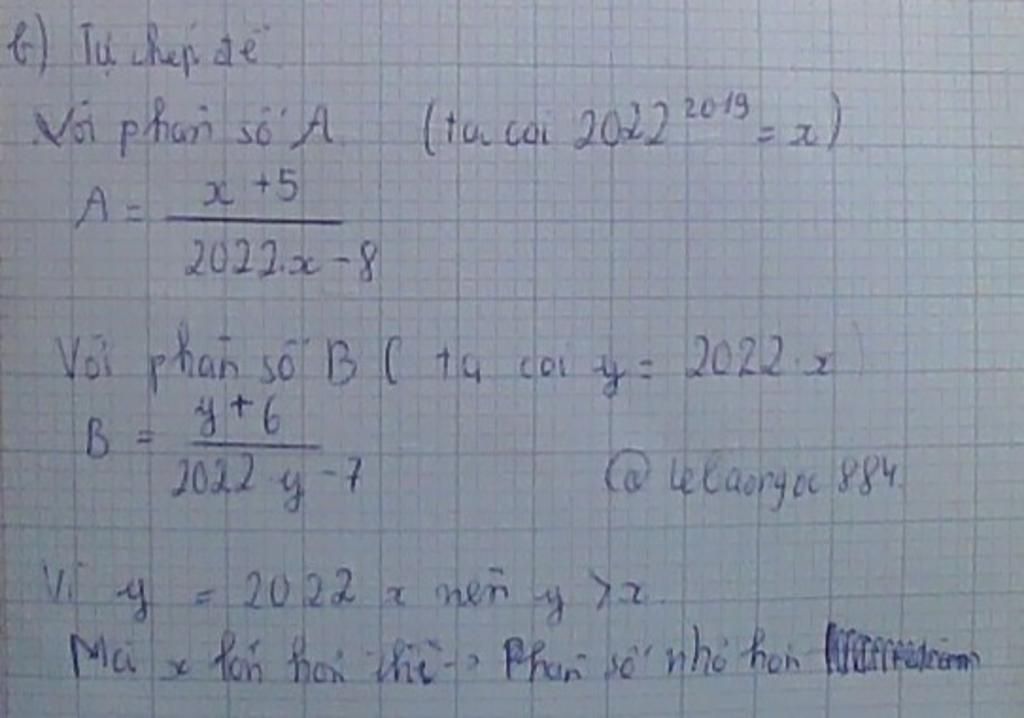 b) Tự chép đề
Với phân số A (ta coi 2022^2019 = x)
A = x + 5 / 2022.x - 8
Với phân số B ( ta coi y = 2022.x
B = y + 6 / 2022 y - 7
@ lecaongoc 884
Vì y = 2022 x nên y > x.
Mà x lớn hơn thì -> Phân số nhỏ hơn